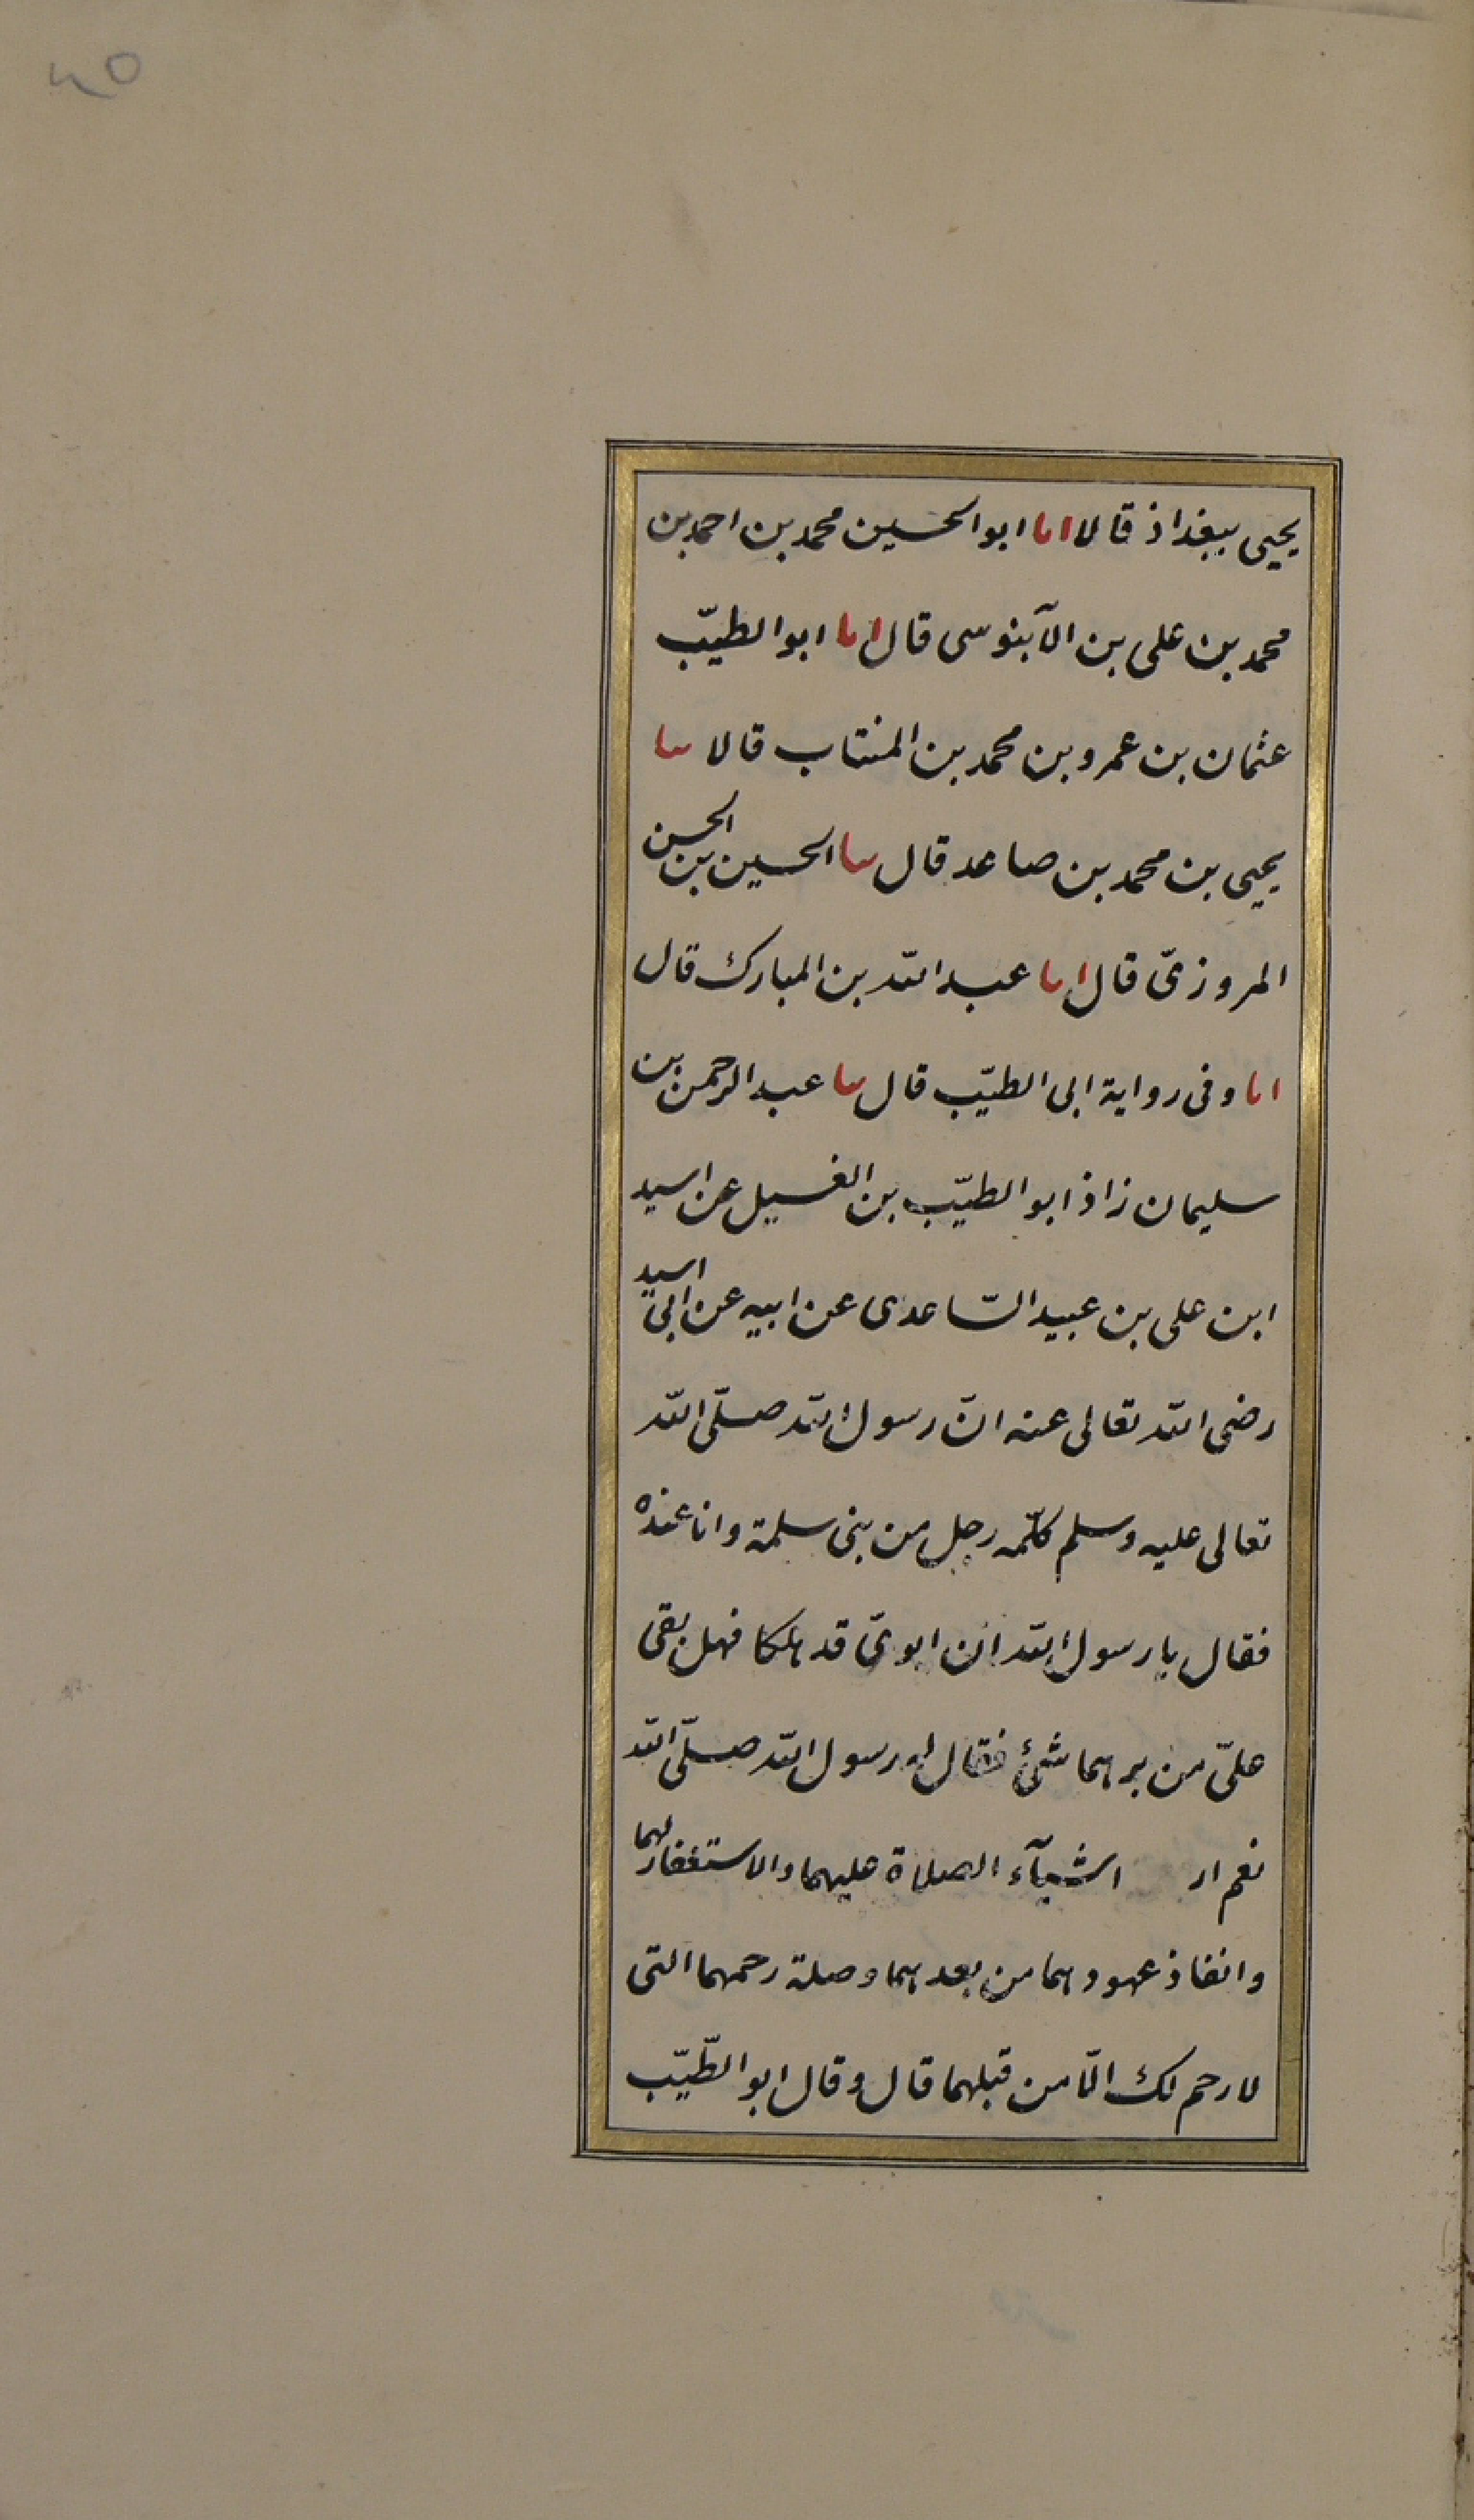 ٤٥
يحيى ببغداذ قالا انا ابو الحسين محمد بن احمد بن
محمد بن على بن الآبنوسى قال انا ابو الطيّب
عثمان بن عمرو بن محمد بن المنتاب قالا سا
يحيى بن محمد بن صاعد قال سا الحسين بن الحسن
المروزىّ قال انا عبد الله بن المبارك قال
انا وفى رواية ابى الطيّب قال سا عبد الرحمن بن
سليمان زاذ ابو الطيّب بن الغسيل عن اسيد
ابن على بن عبيد السّاعدى عن ابيه عن ابى اسيد
رضى الله تعالى عنه انّ رسول الله صلّى الله
تعالى عليه وسلم كلّمه رجل من بنى سلمة وانا عنده
فقال يا رسول الله ان ابوىّ قد هلكا فهل بقى
علىّ من برهما شئ فقال له رسول الله صلّى الله
نعم ار اشيآء الصلاة عليهما والاستغفار لهما
وانفاذ عهودهما من بعدهما وصلة رحمهما التى
لا رحم لك الّا من قبلهما قال وقال ابو الطّيّب